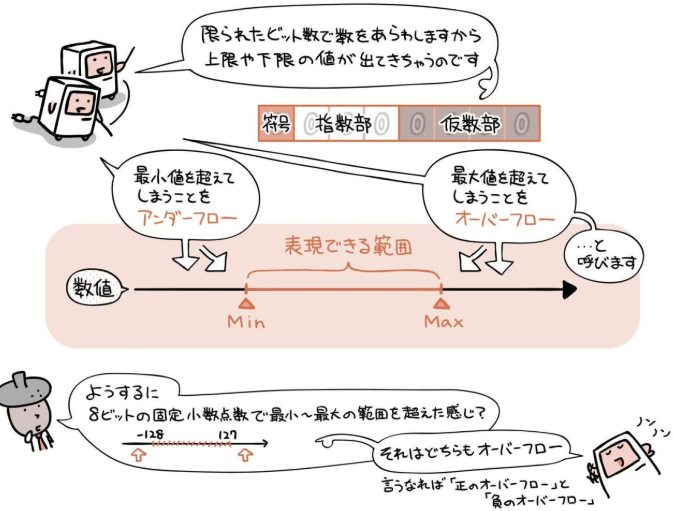 限られたビット数で数をあらわしますから
上限や下限の値が出てきちゃうのです
符号 0 指数部 0 0 仮数部 0
最小値を超えて
しまうことを
アンダーフロー
最大値を超えて
しまうことを
オーバーフロー
…と
呼びます
表現できる範囲
数値
Min
Max
ようするに
8ビットの固定小数点数で最小〜最大の範囲を超えた感じ?
-128
127
ノンノン
それはどちらもオーバーフロー
言うなれば「正のオーバーフロー」と
「負のオーバーフロー」